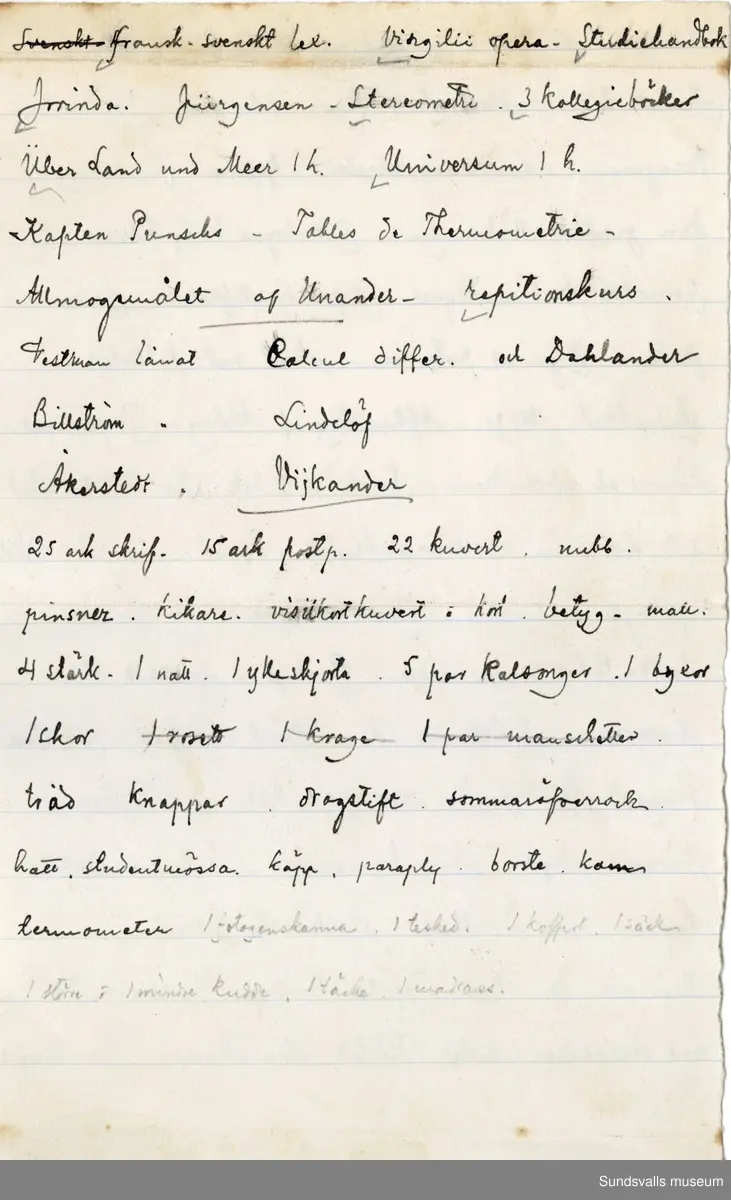 Svenskt Fransk-svenskt lex. Virgilii opera - Studiehandbok
Jorinda. Jürgensen - Stereometri. 3 kollegieböcker
Über Land und Meer 1 h. Universum 1 h.
Kapten Punschs - Tables de Thermometrie -
Allmogemålet af Unander - repitionskurs.
Vestman lånat Calcul differ. och Dahlander
Billström " Lindelöf
Åkerstedt " Vijkander
25 ark skrif. 15 ark postp. 22 kuvert. nubb.
pinsnez. kikare. visitkortkuvert o kort. betyg -
4 stärk - 1 natt. 1 ylleskjorta. 5 par kalsonger. 1 byxor
1 skor 1 rosett 1 krage 1 par manschetter.
tråd knappar. dragstift. sommaröfverrock.
hatt, studentmössa. käpp, paraply. borste. kam
termometer 1 fotogenskanna. 1 tesked. 1 koffert. 1 säck
1 större o 1 mindre kudde. 1 täcke. 1 madrass.
Sundsvalls museum